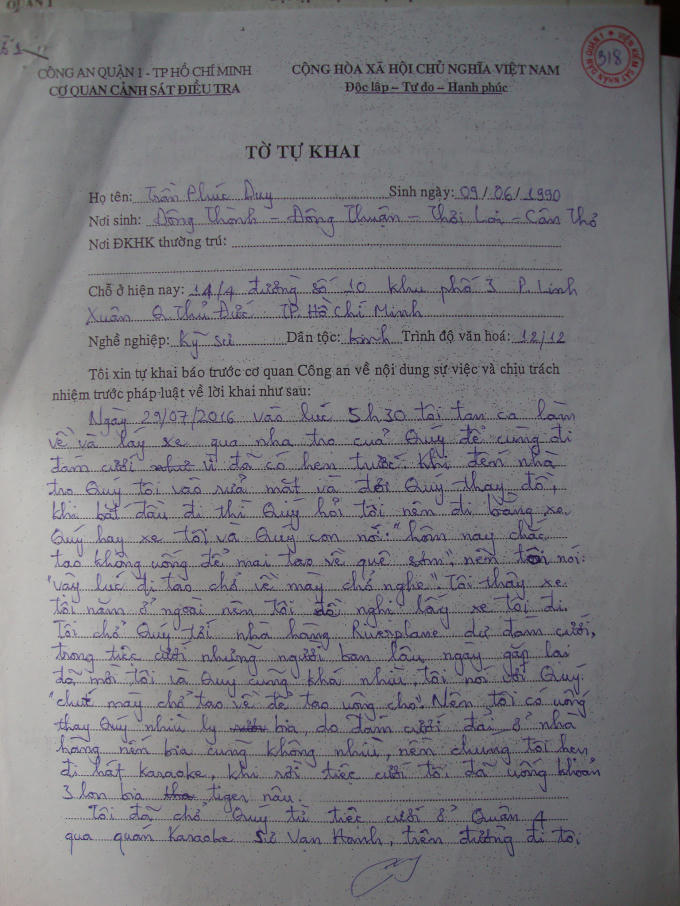 QUẬN 1
VIỆN KIỂM SÁT NHÂN DÂN QUẬN 1
318
CÔNG AN QUẬN 1 - TP HỒ CHÍ MINH
CƠ QUAN CẢNH SÁT ĐIỀU TRA
CỘNG HÒA XÃ HỘI CHỦ NGHĨA VIỆT NAM
Độc lập – Tự do – Hạnh phúc
TỜ TỰ KHAI
Họ tên: Trần Phúc Duy Sinh ngày: 09/06/1990
Nơi sinh: Đông Thành - Đông Thuận - Thới Lai - Cần Thơ
Nơi ĐKHK thường trú:
Chỗ ở hiện nay: 14/4 đường số 10 khu phố 3 P. Linh
Xuân Q. Thủ Đức TP. Hồ Chí Minh
Nghề nghiệp: Kỹ sư Dân tộc: kinh Trình độ văn hoá: 12/12
Tôi xin tự khai báo trước cơ quan Công an về nội dung sự việc và chịu trách
nhiệm trước pháp luật về lời khai như sau:
Ngày 29/07/2016 vào lúc 5h30 tôi tan ca làm
về và lấy xe qua nhà trọ của Quý để cùng đi
đám cưới vì đã có hẹn trước. Khi đến nhà
trọ Quý tôi vào rửa mặt và đợi Quý thay đồ,
khi bắt đầu đi thì Quý hỏi tôi nên đi bằng xe
Quý hay xe tôi và Quý còn nói: "hôm nay chắc
tao không uống để mai tao về quê sớm", nên tôi nói:
"vậy lúc đi tao chở về mày chở nghe". Tôi thấy xe
tôi nằm ở ngoài nên tôi đề nghị lấy xe tôi đi.
Tôi chở Quý tới nhà hàng Riverplane dự đám cưới,
trong tiệc cưới những người bạn lâu ngày gặp lại
đã mời tôi và Quý cũng khá nhiều, tôi nói với Quý
"chút mày chở tao về để tao uống cho". Nên tôi có uống
thay Quý nhiều ly bia, do đám cưới đãi ở nhà
hàng nên bia cũng không nhiều, nên chúng tôi hẹn
đi hát karaoke, khi rời tiệc cưới tôi đã uống khoản
3 lon bia tiger nâu.
Tôi đã chở Quý từ tiệc cưới ở Quận 4
qua quán Karaoke Sư Vạn Hạnh, trên đường đi tôi